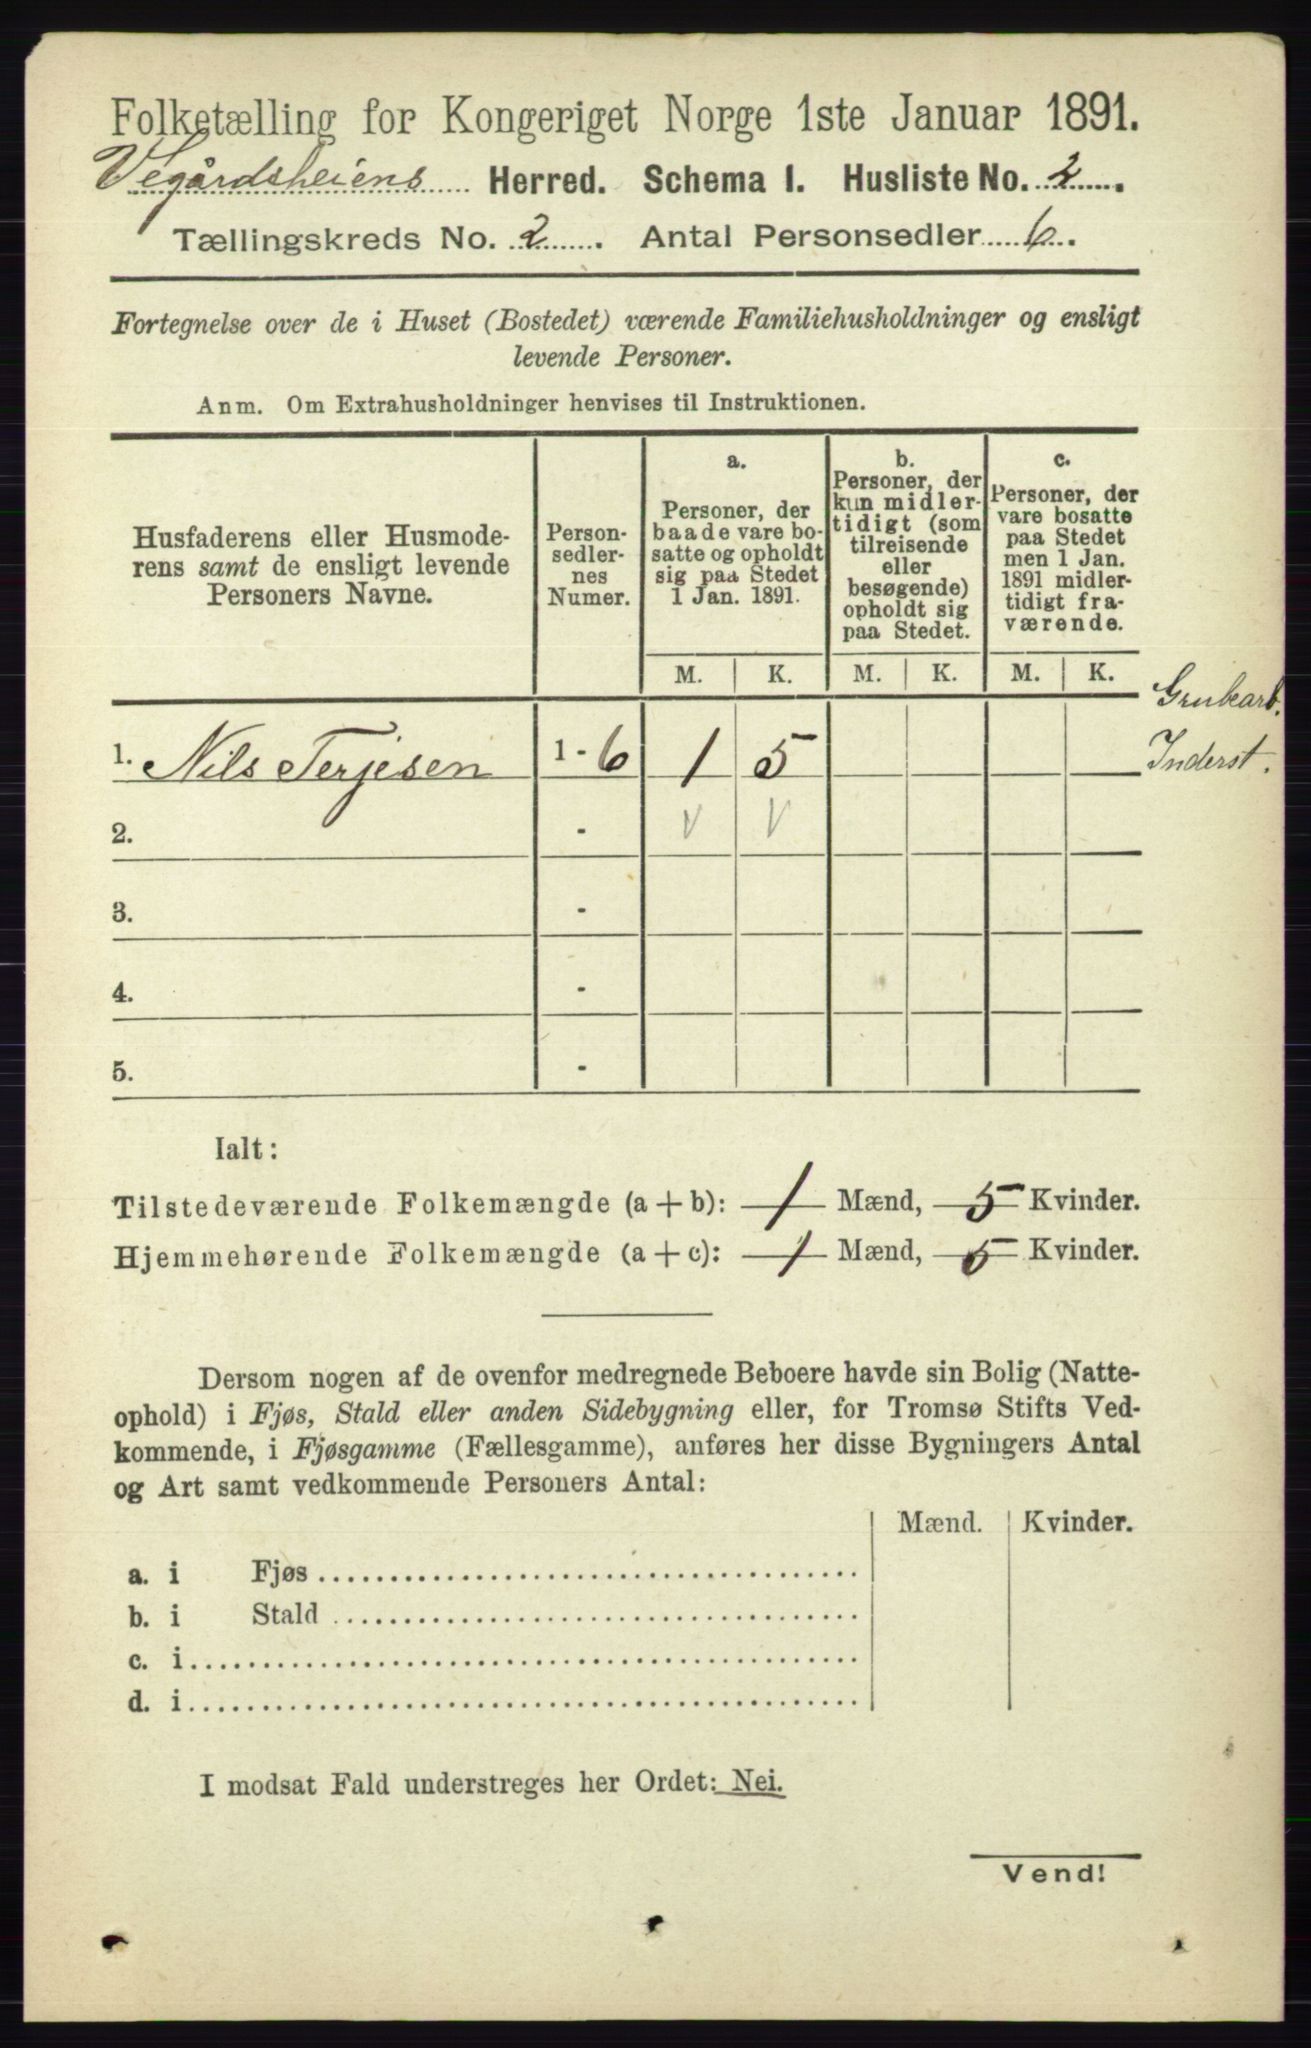 Folketælling for Kongeriget Norge 1ste Januar 1891.
Vegårdsheiens Herred. Schema I. Husliste No. 2.
Tællingskreds No. 2. Antal Personsedler 6.
Fortegnelse over de i Huset (Bostedet) værende Familiehusholdninger og ensligt
levende Personer.
Anm. Om Extrahusholdninger henvises til Instruktionen.
Husfaderens eller Husmode-
rens samt de ensligt levende
Personers Navne.
Person-
sedler-
nes
Numer.
a.
Personer, der
baade vare bo-
satte og opholdt
sig paa Stedet
1 Jan. 1891.
b.
Personer, der
kun midler-
tidigt (som
tilreisende
eller
besøgende)
opholdt sig
paa Stedet.
c.
Personer, der
vare bosatte
paa Stedet
men 1 Jan.
1891 midler-
tidigt fra-
værende.
M. K. M. K. M. K.
Grubearb.
1. Nils Terjesen 1 - 6 1 5 Inderst.
2. - V V
3. -
4. -
5. -
Ialt:
Tilstedeværende Folkemængde (a + b): 1 Mænd, 5 Kvinder.
Hjemmehørende Folkemængde (a + c): 1 Mænd, 5 Kvinder.
Dersom nogen af de ovenfor medregnede Beboere havde sin Bolig (Natte-
ophold) i Fjøs, Stald eller anden Sidebygning eller, for Tromsø Stifts Ved-
kommende, i Fjøsgamme (Fællesgamme), anføres her disse Bygningers Antal
og Art samt vedkommende Personers Antal:
Mænd. Kvinder.
a. i Fjøs
b. i Stald
c. i
d. i
I modsat Fald understreges her Ordet: Nei.
Vend!